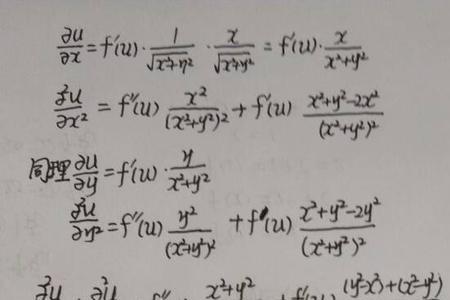 ∂u/∂x = f'(u) · 1/√(x²+y²) · x/√(x²+y²) = f'(u) · x/(x²+y²)
∂²u/∂x² = f''(u) x²/(x²+y²)² + f'(u) (x²+y²-2x²)/(x²+y²)²
同理 ∂u/∂y = f'(u) · y/(x²+y²)
∂²u/∂y² = f''(u) y²/(x²+y²)² + f'(u) (x²+y²-2y²)/(x²+y²)²
x²+y² (y²-x²)+(x²-y²)